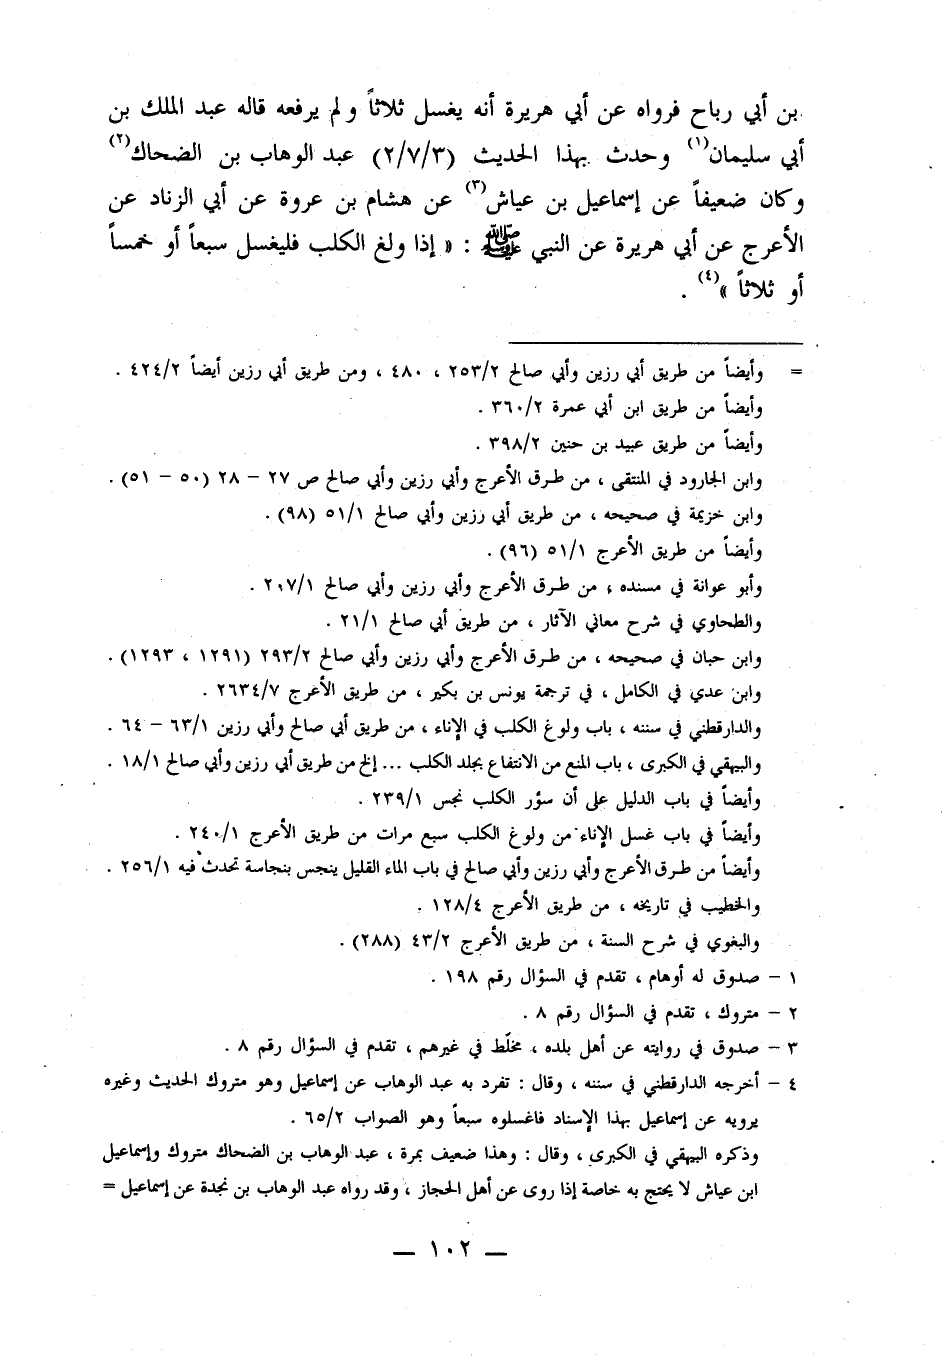 بن أبي رباح فرواه عن أبي هريرة أنه يغسل ثلاثاً ولم يرفعه قاله عبد الملك بن
أبي سليمان(١) وحدث بهذا الحديث (٢/٧/٣) عبد الوهاب بن الضحاك(٢)
وكان ضعيفاً عن إسماعيل بن عياش(٣) عن هشام بن عروة عن أبي الزناد عن
الأعرج عن أبي هريرة عن النبي ﷺ : « إذا ولغ الكلب فليغسل سبعاً أو خمساً
أو ثلاثاً »(٤) .
= وأيضاً من طريق أبي رزين وأبي صالح ٢٥٣/٢ ، ٤٨٠ ، ومن طريق أبي رزين أيضاً ٤٢٤/٢ .
وأيضاً من طريق ابن أبي عمرة ٣٦٠/٢ .
وأيضاً من طريق عبيد بن حنين ٣٩٨/٢ .
وابن الجارود في المنتقى ، من طرق الأعرج وأبي رزين وأبي صالح ص ٢٧ – ٢٨ (٥٠ – ٥١) .
وابن خزيمة في صحيحه ، من طريق أبي رزين وأبي صالح ٥١/١ (٩٨) .
وأيضاً من طريق الأعرج ٥١/١ (٩٦) .
وأبو عوانة في مسنده ، من طرق الأعرج وأبي رزين وأبي صالح ٢٠٧/١ .
والطحاوي في شرح معاني الآثار ، من طريق أبي صالح ٢١/١ .
وابن حبان في صحيحه ، من طرق الأعرج وأبي رزين وأبي صالح ٢٩٣/٢ (١٢٩١ ، ١٢٩٣) .
وابن عدي في الكامل ، في ترجمة يونس بن بكير ، من طريق الأعرج ٢٦٣٤/٧ .
والدارقطني في سننه ، باب ولوغ الكلب في الإناء ، من طريق أبي صالح وأبي رزين ٦٣/١ – ٦٤ .
والبيهقي في الكبرى ، باب المنع من الانتفاع بجلد الكلب ... إلخ من طريق أبي رزين وأبي صالح ١٨/١ .
وأيضاً في باب الدليل على أن سؤر الكلب نجس ٢٣٩/١ .
وأيضاً في باب غسل الإناء من ولوغ الكلب سبع مرات من طريق الأعرج ٢٤٠/١ .
وأيضاً من طرق الأعرج وأبي رزين وأبي صالح في باب الماء القليل ينجس بنجاسة تحدث فيه ٢٥٦/١ .
والخطيب في تاريخه ، من طريق الأعرج ١٢٨/٤ .
والبغوي في شرح السنة ، من طريق الأعرج ٤٣/٢ (٢٨٨) .
١ – صدوق له أوهام ، تقدم في السؤال رقم ١٩٨ .
٢ – متروك ، تقدم في السؤال رقم ٨ .
٣ – صدوق في روايته عن أهل بلده ، مخلّط في غيرهم ، تقدم في السؤال رقم ٨ .
٤ – أخرجه الدارقطني في سننه ، وقال : تفرد به عبد الوهاب عن إسماعيل وهو متروك الحديث وغيره
يرويه عن إسماعيل بهذا الإسناد فاغسلوه سبعاً وهو الصواب ٦٥/٢ .
وذكره البيهقي في الكبرى ، وقال : وهذا ضعيف بمرة ، عبد الوهاب بن الضحاك متروك وإسماعيل
ابن عياش لا يحتج به خاصة إذا روى عن أهل الحجاز ، وقد رواه عبد الوهاب بن نجدة عن إسماعيل =
— ١٠٢ —